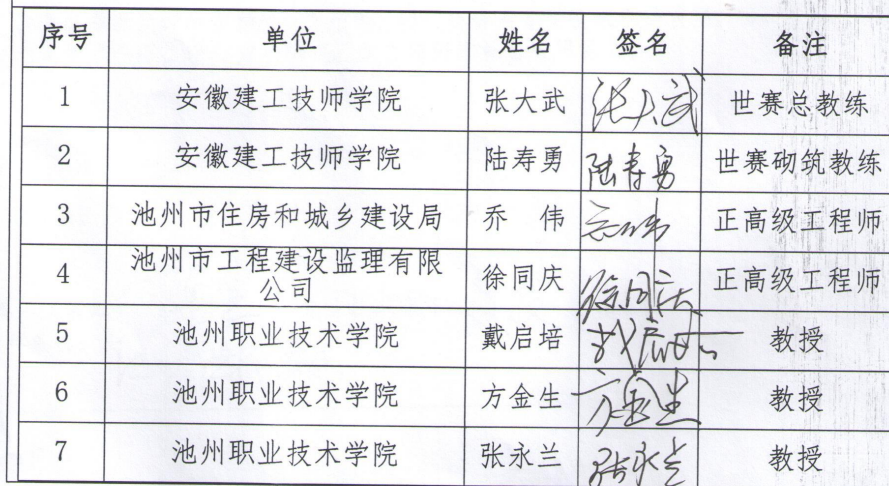 序号 单位 姓名 签名 备注
1 安徽建工技师学院 张大武 张大武 世赛总教练
2 安徽建工技师学院 陆寿勇 陆寿勇 世赛砌筑教练
3 池州市住房和城乡建设局 乔 伟 正高级工程师
4 池州市工程建设监理有限 徐同庆 徐同庆 正高级工程师
公司
5 池州职业技术学院 戴启培 戴启培 教授
6 池州职业技术学院 方金生 方金生 教授
7 池州职业技术学院 张永兰 张永兰 教授